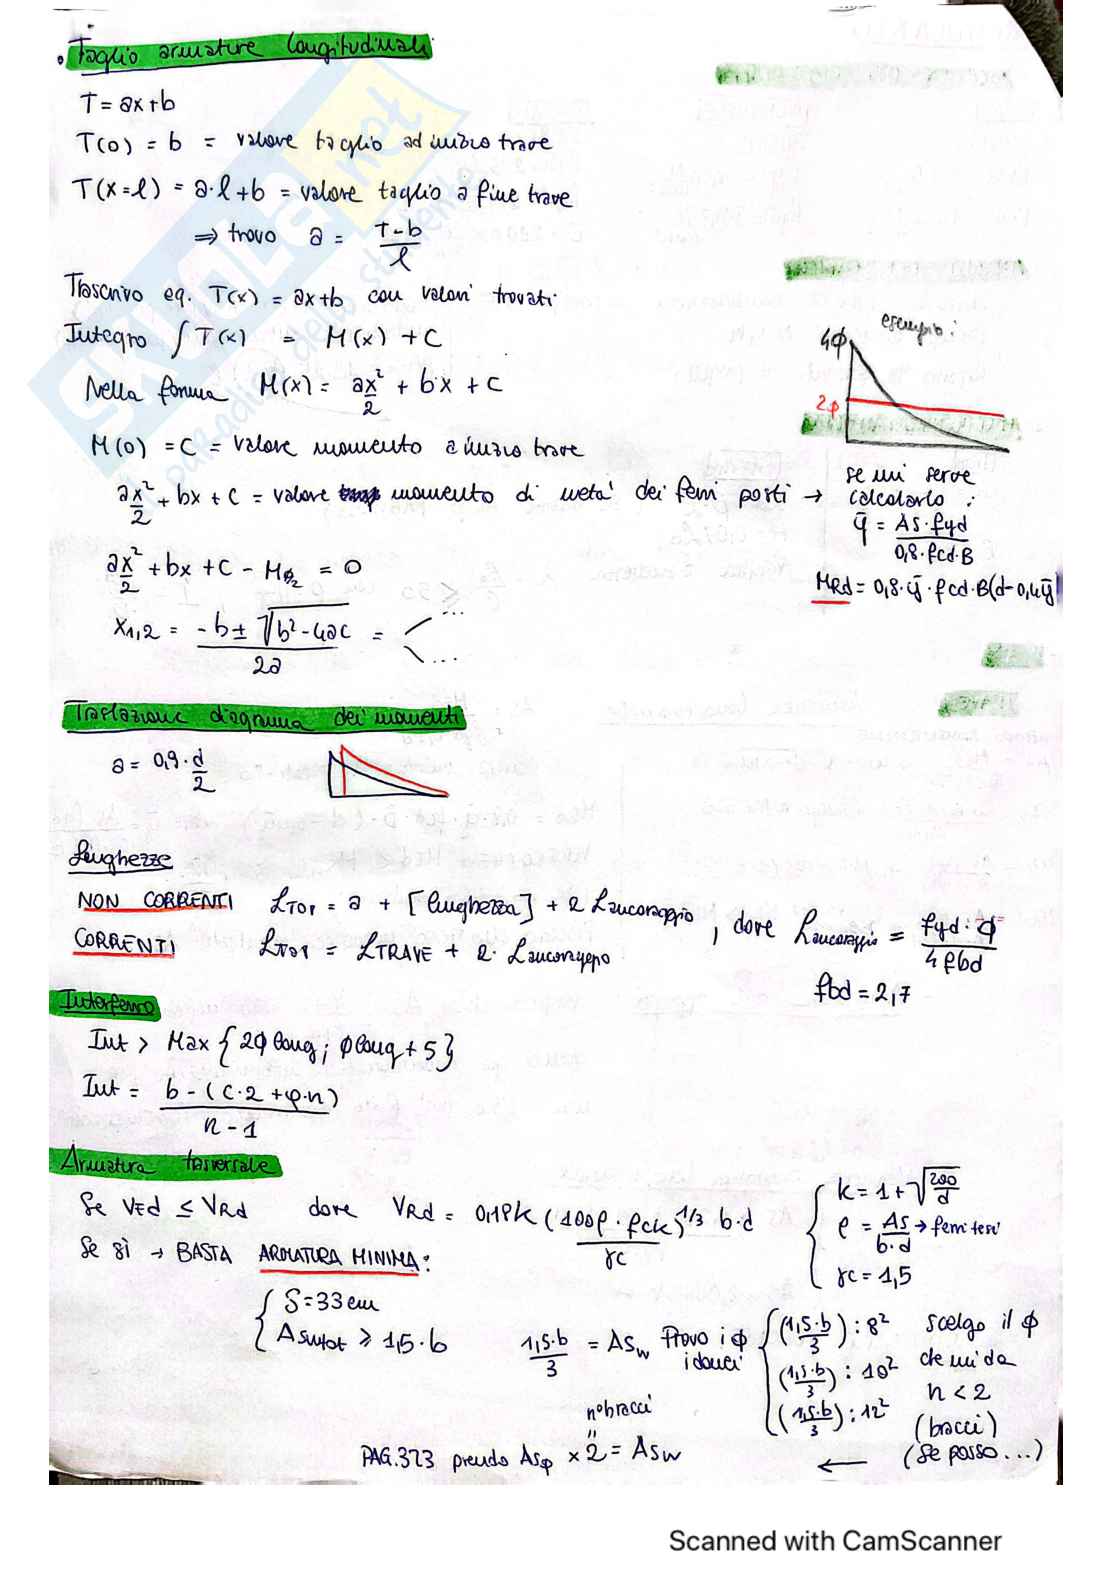 • Taglio armature longitudinali
T = ax+b
T(0) = b = valore taglio ad inizio trave
T(x=l) = a·l+b = valore taglio a fine trave
⇒ trovo a = T-b / l
Trascrivo eq. T(x) = ax+b con valori trovati
Integro ∫T(x) = M(x) + C
Nella forma M(x) = ax²/2 + b·x + C
M(0) = C = valore momento a inizio trave
ax²/2 + bx + C = valore momento di metà dei ferri posti →
ax²/2 + bx + C - MΦ/2 = 0
x1,2 = -b ± √b²-4ac / 2a = < ... ...
esempio:
4Φ
2Φ
se mi serve
calcolarlo :
ȳ = As·fyd / 0,8·fcd·B
MRd = 0,8·ȳ·fcd·B(d-0,4ȳ)
Traslazione diagramma dei momenti
a = 0,9·d/2
Lunghezze
NON CORRENTI LTOT = a + [lunghezza] + 2 Lancoraggio
CORRENTI LTOT = LTRAVE + 2· Lancoraggio
, dove Lancoraggio = fyd·Φ / 4 fbd
fbd = 2,7
Interferro
Int > Max {2Φ long; Φ long + 5}
Int = b-(C·2+φ·n) / n-1
Armatura trasversale
Se VEd ≤ VRd dove VRd = 0,18k (100ρ·fck)^1/3 b·d / γc
{ k = 1+√200/d
ρ = As/b·d → ferri tesi
γc = 1,5
Se sì → BASTA ARMATURA MINIMA:
{ S = 33 cm
Aswtot ≥ 1,5·b
1,5·b/3 = Asw Provo i Φ idonei
{ (1,5·b/3) : 8²
(1,5·b/3) : 10²
(1,5·b/3) : 12²
scelgo il Φ
che mi da
n < 2
(bracci)
(se posso...)
←
n°bracci
PAG.373 prendo Asφ × 2 = Asw
SKUOLA.net
il paradiso dello studente
Scanned with CamScanner